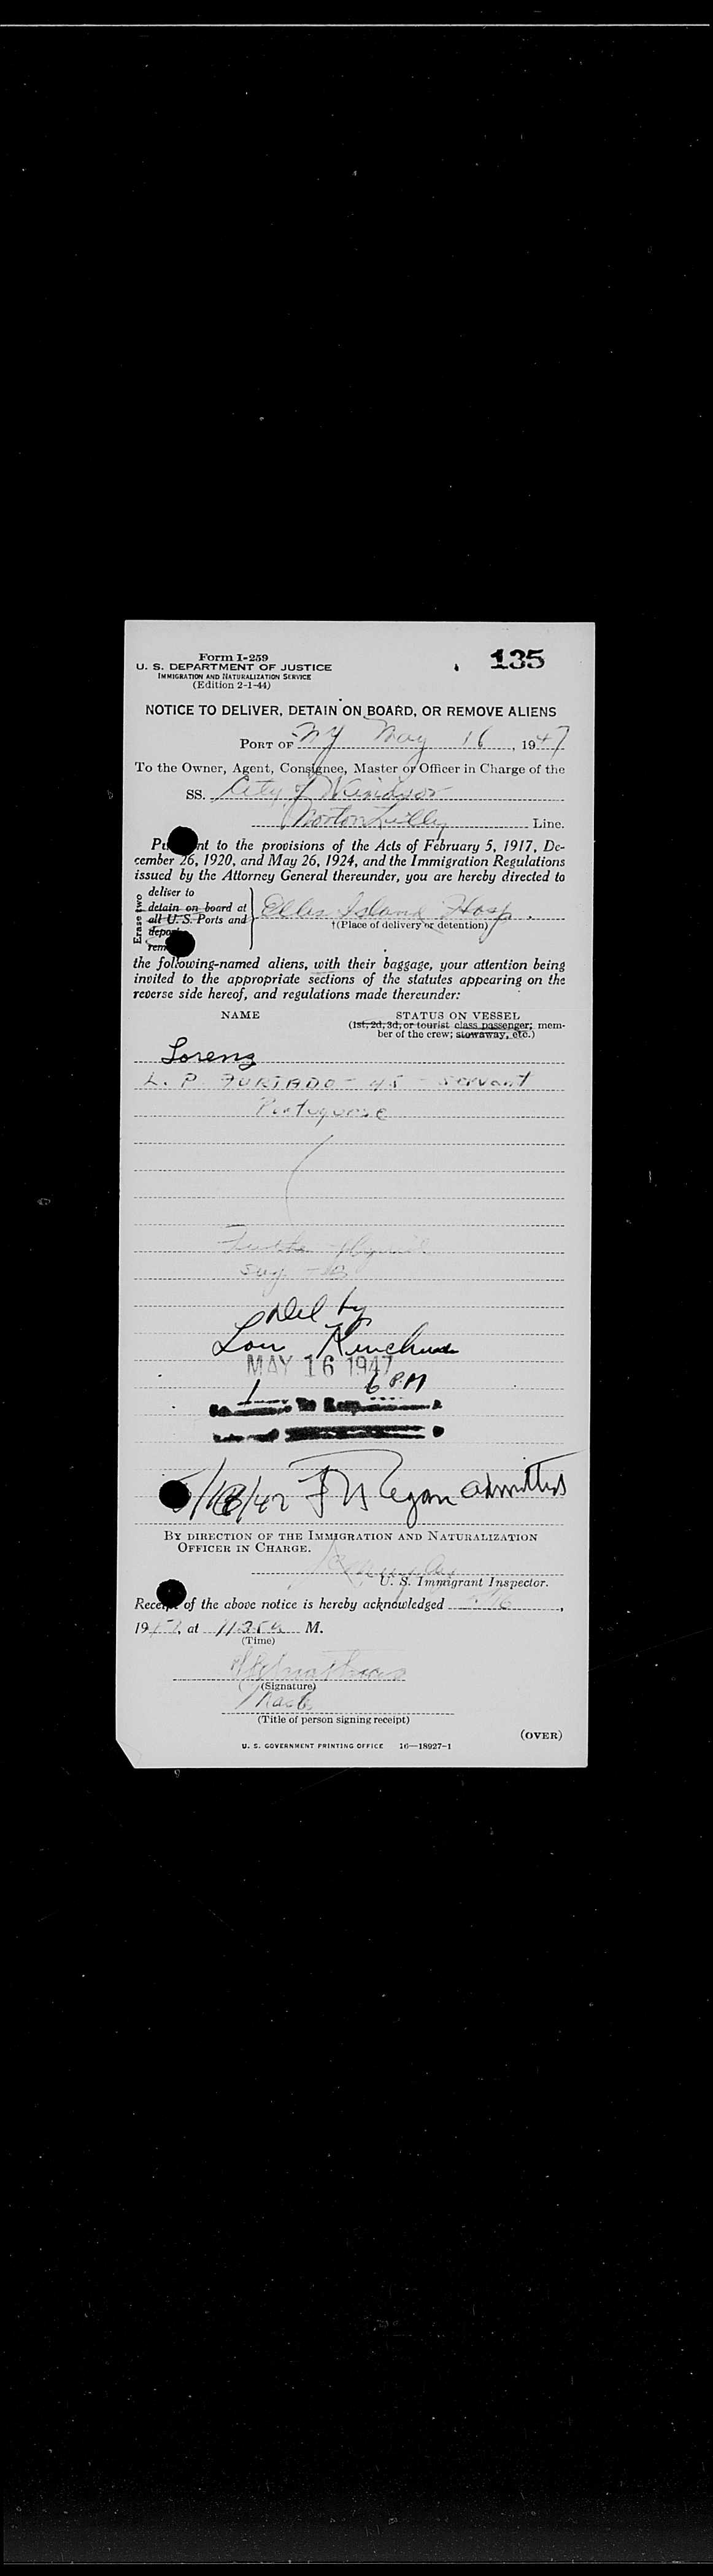 Form I-259
135
U. S. DEPARTMENT OF JUSTICE
IMMIGRATION AND NATURALIZATION SERVICE
(Edition 2-1-44)
NOTICE TO DELIVER, DETAIN ON BOARD, OR REMOVE ALIENS
PORT OF NY May 16, 1947
To the Owner, Agent, Consignee, Master or Officer in Charge of the
SS. City of Windsor
Norton Lilly Line.
Pu nt to the provisions of the Acts of February 5, 1917, De-
cember 26, 1920, and May 26, 1924, and the Immigration Regulations
issued by the Attorney General thereunder, you are hereby directed to
Erase two
deliver to
detain on board at
all U. S. Ports and
depor
rem
Ellis Island Hosp.
†(Place of delivery or detention)
the following-named aliens, with their baggage, your attention being
invited to the appropriate sections of the statutes appearing on the
reverse side hereof, and regulations made thereunder:
NAME
STATUS ON VESSEL
(1st, 2d, 3d, or tourist class passenger; mem-
ber of the crew; stowaway, etc.)
Lorenz
L. P. FURTADO - 45 - Servant
Portuguese
Del by
Lou
MAY 16 1947
1 6 PM
F N Regan admitted
BY DIRECTION OF THE IMMIGRATION AND NATURALIZATION
OFFICER IN CHARGE.
U. S. Immigrant Inspector.
Receipt of the above notice is hereby acknowledged 5/16,
1947, at 11:35a M.
(Time)
(Signature)
(Title of person signing receipt)
(OVER)
U. S. GOVERNMENT PRINTING OFFICE 16—18927-1